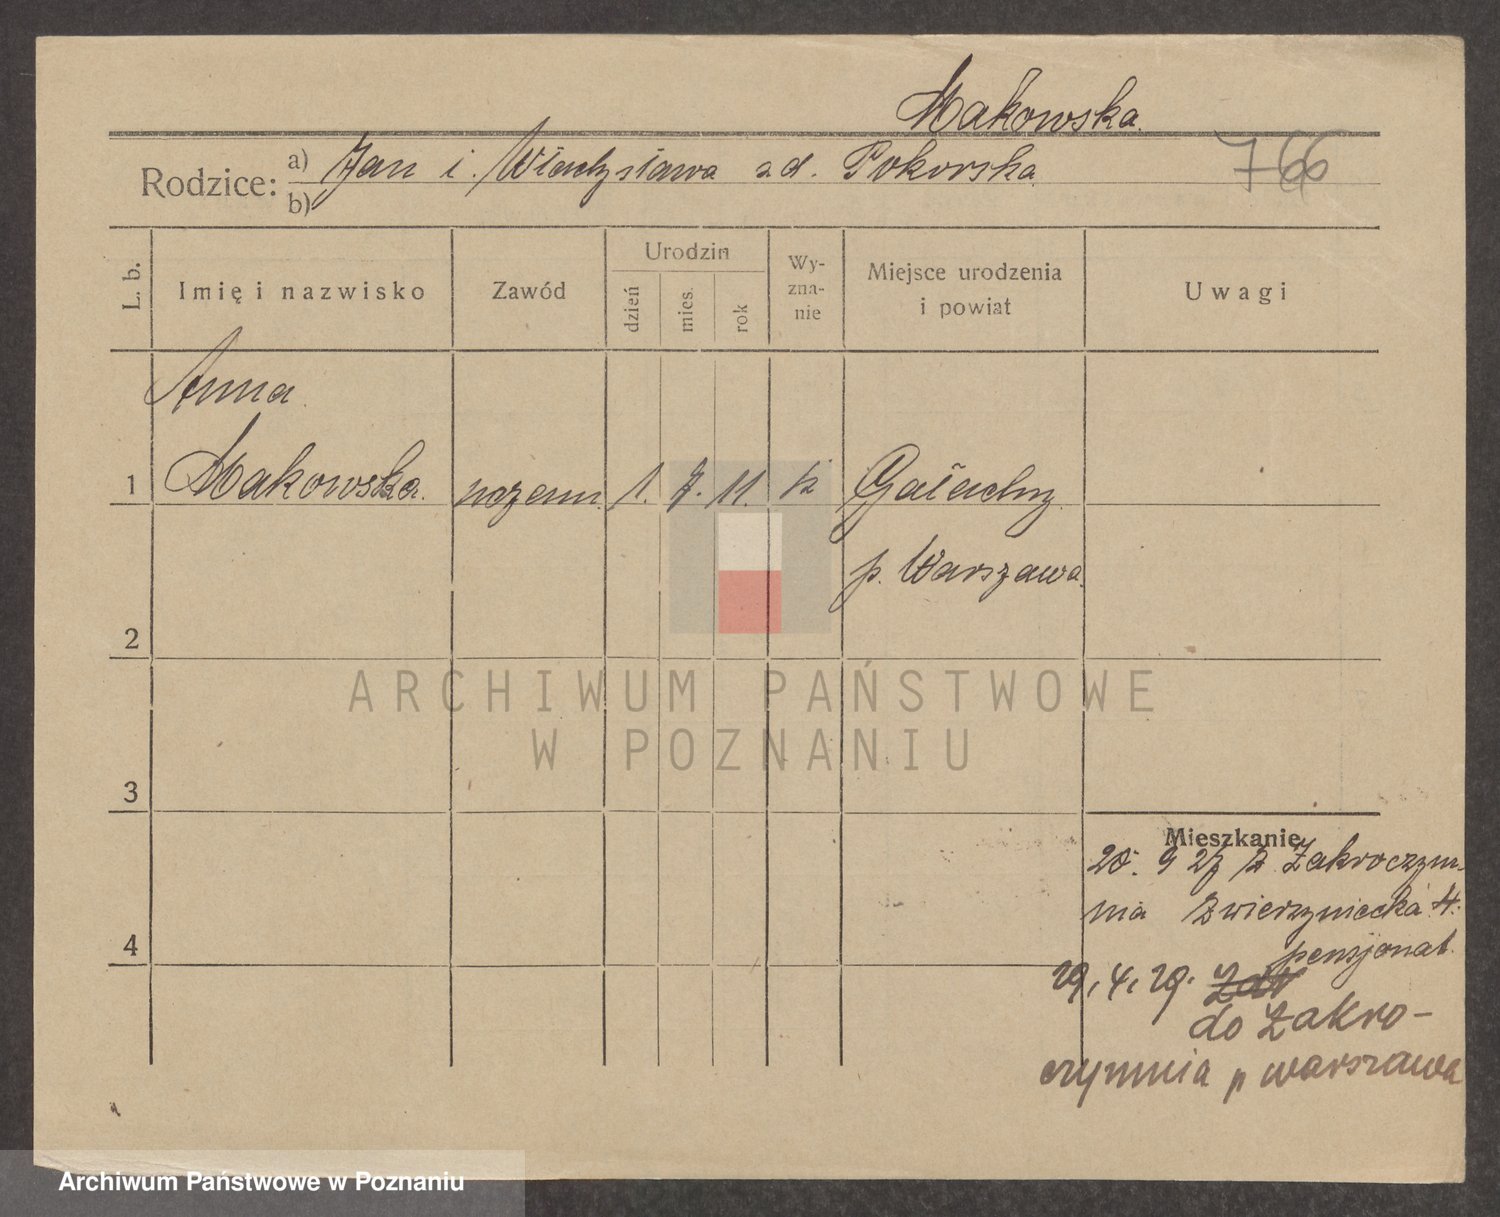 Makowska.
Rodzice: a) Jan i Władysława z d. Pokorska
b)
766
L. b.
Imię i nazwisko
Zawód
Urodzin
dzień
mies.
rok
Wy-
zna-
nie
Miejsce urodzenia
i powiat
Uwagi
Anna
1 Makowska. uczenn. 1. 7. 11. k Gałachy
p. Warszawa
2
ARCHIWUM PAŃSTWOWE
W POZNANIU
3
Mieszkanie
20. 9 27 z Zakroczym-
nia Zwierzyniecka
pensjonat.
4
29. 4. 29.
do Zakro-
czymnia p Warszawa
Archiwum Państwowe w Poznaniu